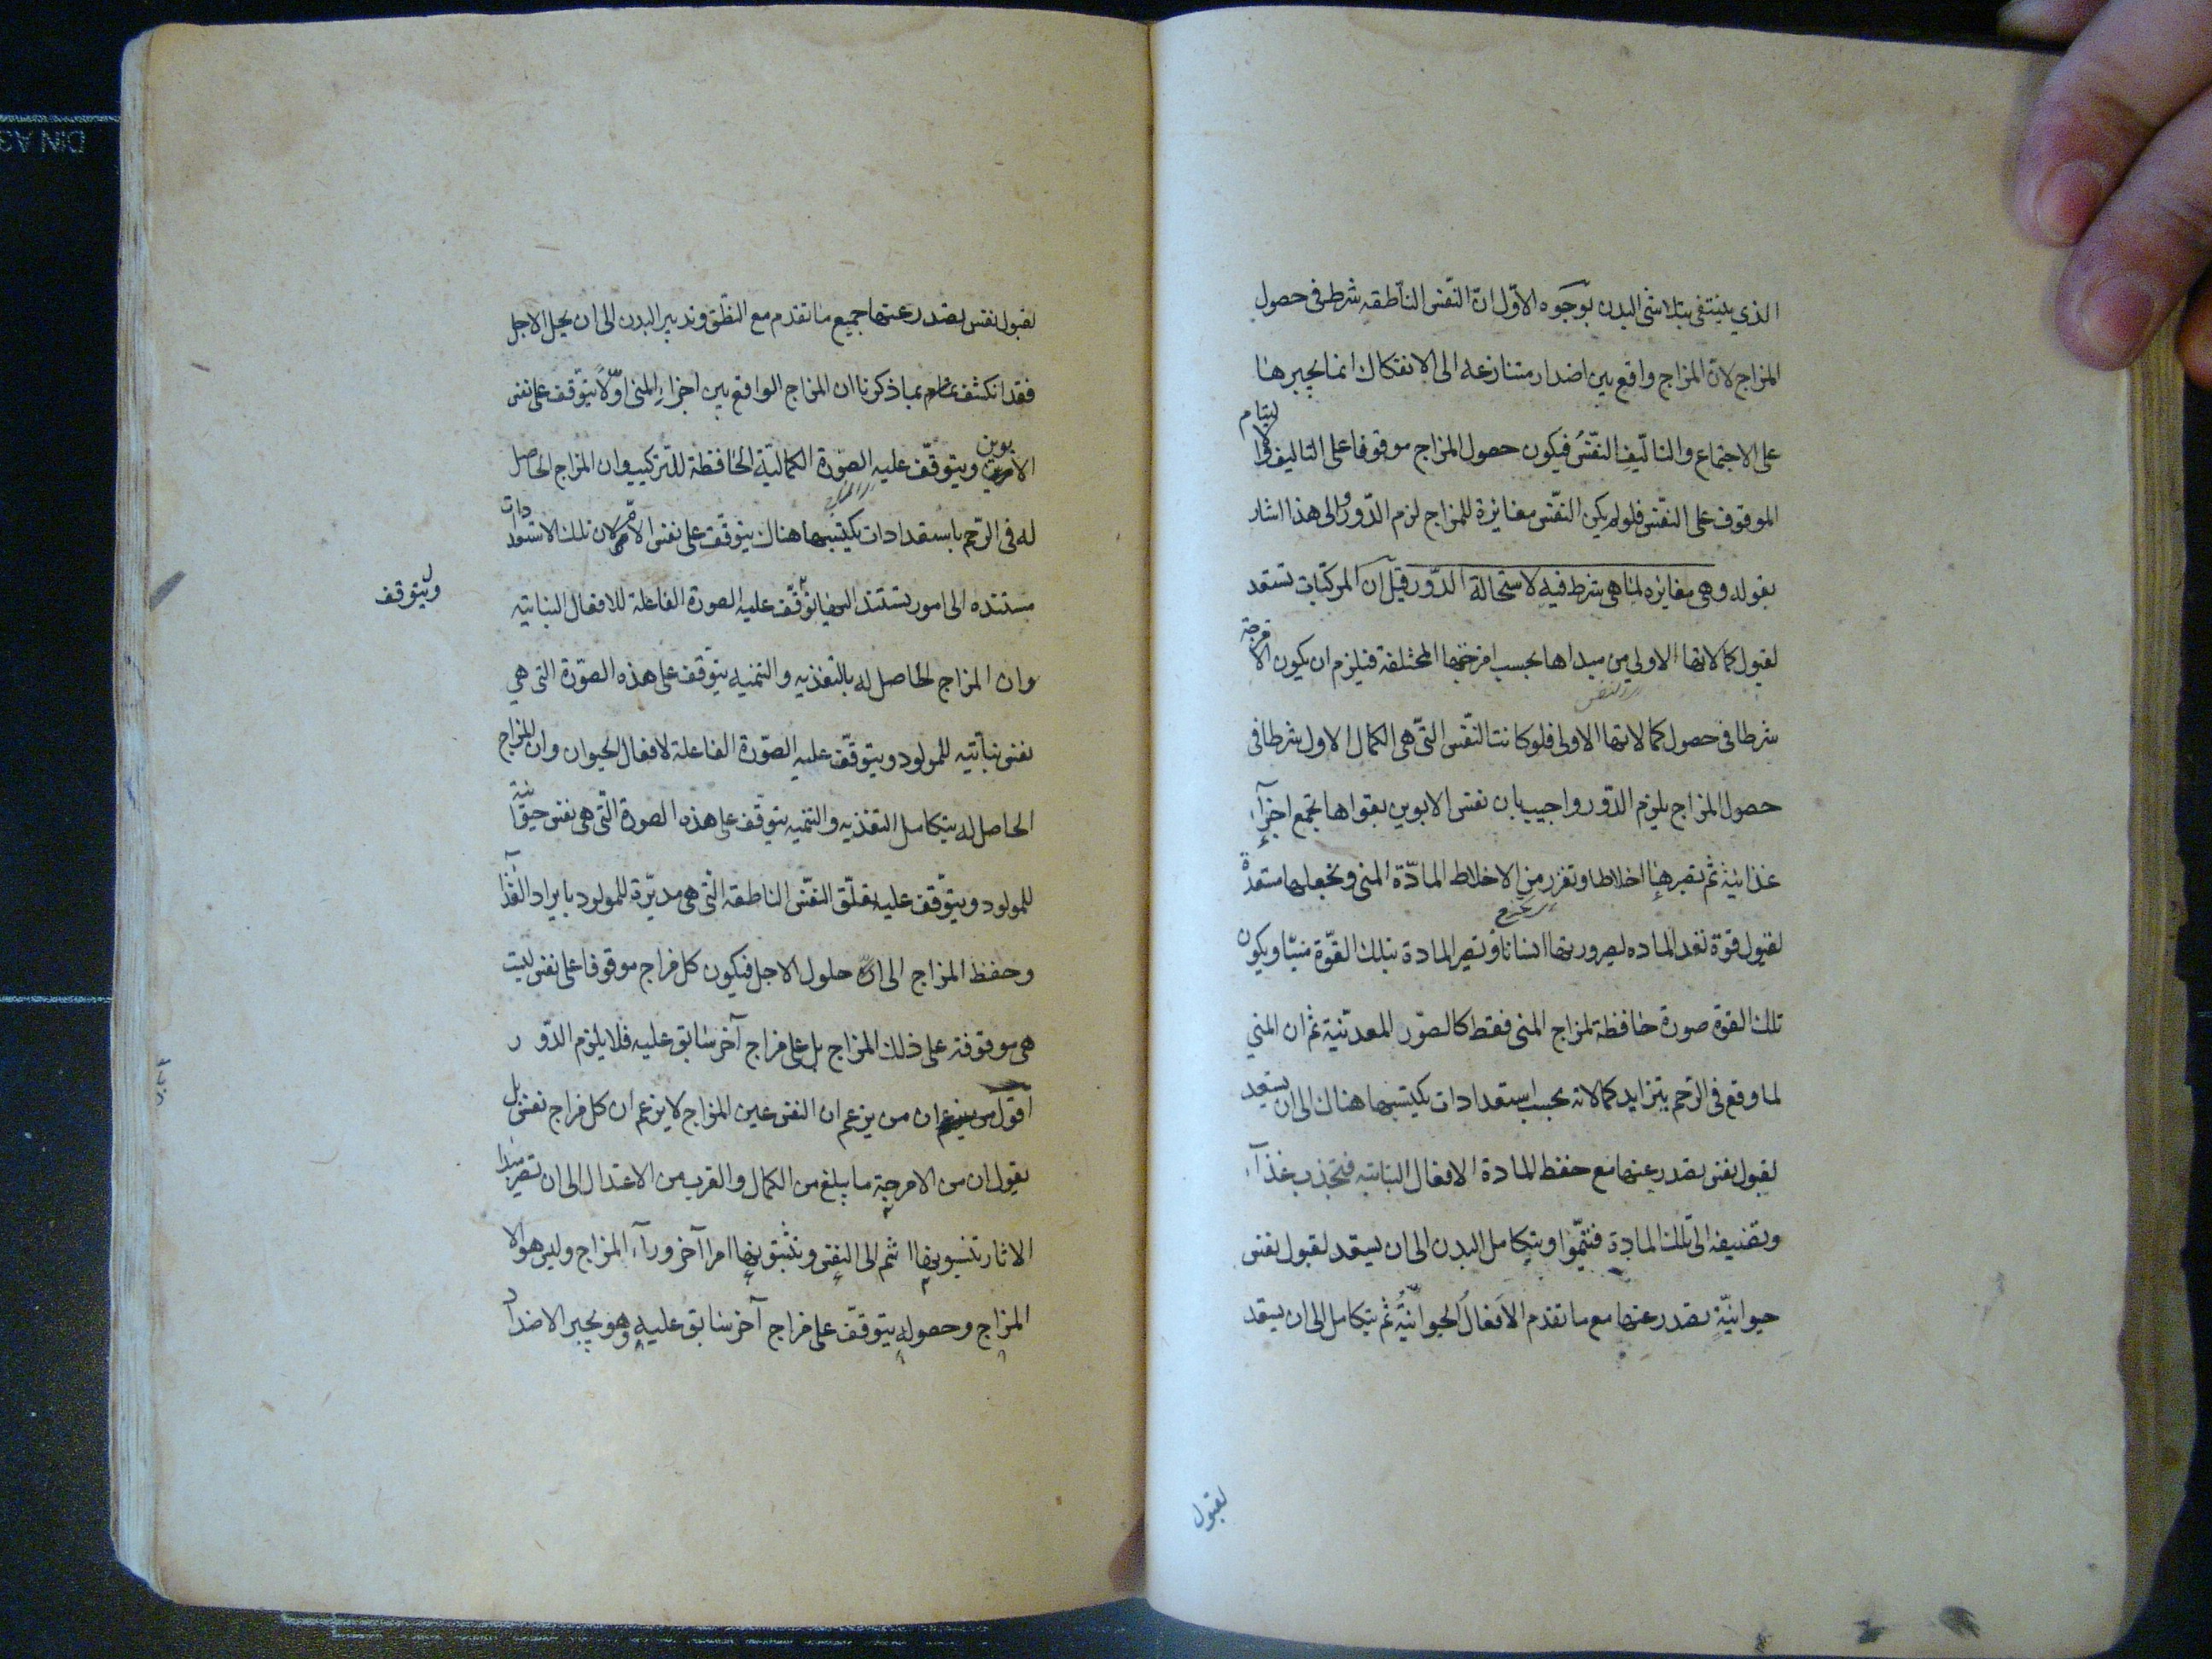 الذي ينتفي بتلاشي البدن بوجوه الاوّل انّ النّفس النّاطقه شرط فى حصول
المزاج لانّ المزاج واقع بين اضداد متنازعه الى الانفكاك انما يجبرها
على الاجتماع والتاليف النّفسُ فيكون حصول المزاج موقوفا على التاليف والالتيام
الموقوف على النّفس فلو لم يكن النّفس مغايرة للمزاج لزم الدّور والى هذا اشار
بقوله وهى مغايره لما هى شرط فيه لاستحالة الدّور قيل ان المركّبات تستعد
لقبول كمالاتها الاولى من مبداها بحسب امزجتها المختلفة فيلزم ان يكون الامزجة
شرطا فى حصول كمالاتها الاولى فلو كانت النّفس التّى هى الكمال الاول شرطا فى
حصول المزاج يلزم الدّور واجيب بان نفس الابوين بقواها تجمع اجزآء
غذائية ثم تصيرها اخلاطا وتفرز من الاخلاط المادّة المنى وتجعلها مستعدة
لقبول قوة تعد الماده لصيرورتها انسانا وتصير المادة بتلك القوّة منيّا ويكون
تلك القوة صورة حافظة لمزاج المنى فقط كالصوّر المعدنية ثم ان المني
لما وقع فى الرّحم يتزايد كمالاته بحسب استعدادات يكتسبها هناك الى ان يستعد
لقبول نفس تصدر عنها مع حفظ المادة الافعال النباتيه فتجذب غذآء
وتضيفه الى تلك المادة فتنمّوا ويتكامل البدن الى ان يستعد لقبول نفس
حيوانيّة تصدر عنها مع ما تقدم الافعالُ الحيوانيّةُ ثم يتكامل الى ان يستعد
لقبول
لقبول نفس تصدر عنها جميع ما تقدم مع النطق وتدبير البدن الى ان يحل الاجل
فقد انكشف بما ذكرنا ان المزاج الواقع بين اجزاء المنى اوّلا يتوّقف على نفس
الابوين ويتوقّف عليه الصّورة الكماليّة الحافظة للتركيب وان المزاج الحاصل
له فى الرّحم باستعدادات يكتسبها هناك يتوقّف على نفس الام لان تلك الاستعدادات
مستنده الى امور تستند اليها توقّف عليه الصورة الفاعلة للافعال النباتيه
ويتوقف
وان المزاج الحاصل له بالتغذيه والتنميه يتوّقف على هذه الصّورة التى هى
نفس نباتيه للمولود ويتوقّف عليه الصّورة الفاعلة لافعال الحيوان وان المزاج
الحاصل له بتكامل التغذيه والتنميه يتوّقف على هذه الصورة التّى هى نفس حيوانية
للمولود ويتوّقف عليه تعلّق النّفس الناطقه التّى هى مدبّرة للمولود بايراد الغذآ
وحفظ المزاج الى حلول الاجل فيكون كل مزاج موقوفا على نفس ليست
هى موقوفة على ذلك المزاج بل على مزاج آخر سابق عليه فلا يلزم الدّور
اقول ان من يزعم ان النفس عين المزاج لا يزعم ان كل مزاج نفس بل
يقول ان من الامزجة ما يبلغ من الكمال والقرب من الاعتدال الى ان تصير مبدا
الاثار تنسبونها انتم الى النفس وتثبتونها امرا آخر ورآء المزاج وليس هو الا
المزاج وحصوله يتوقّف على مزاج آخر سابق عليه وهو يجبر الاضداد